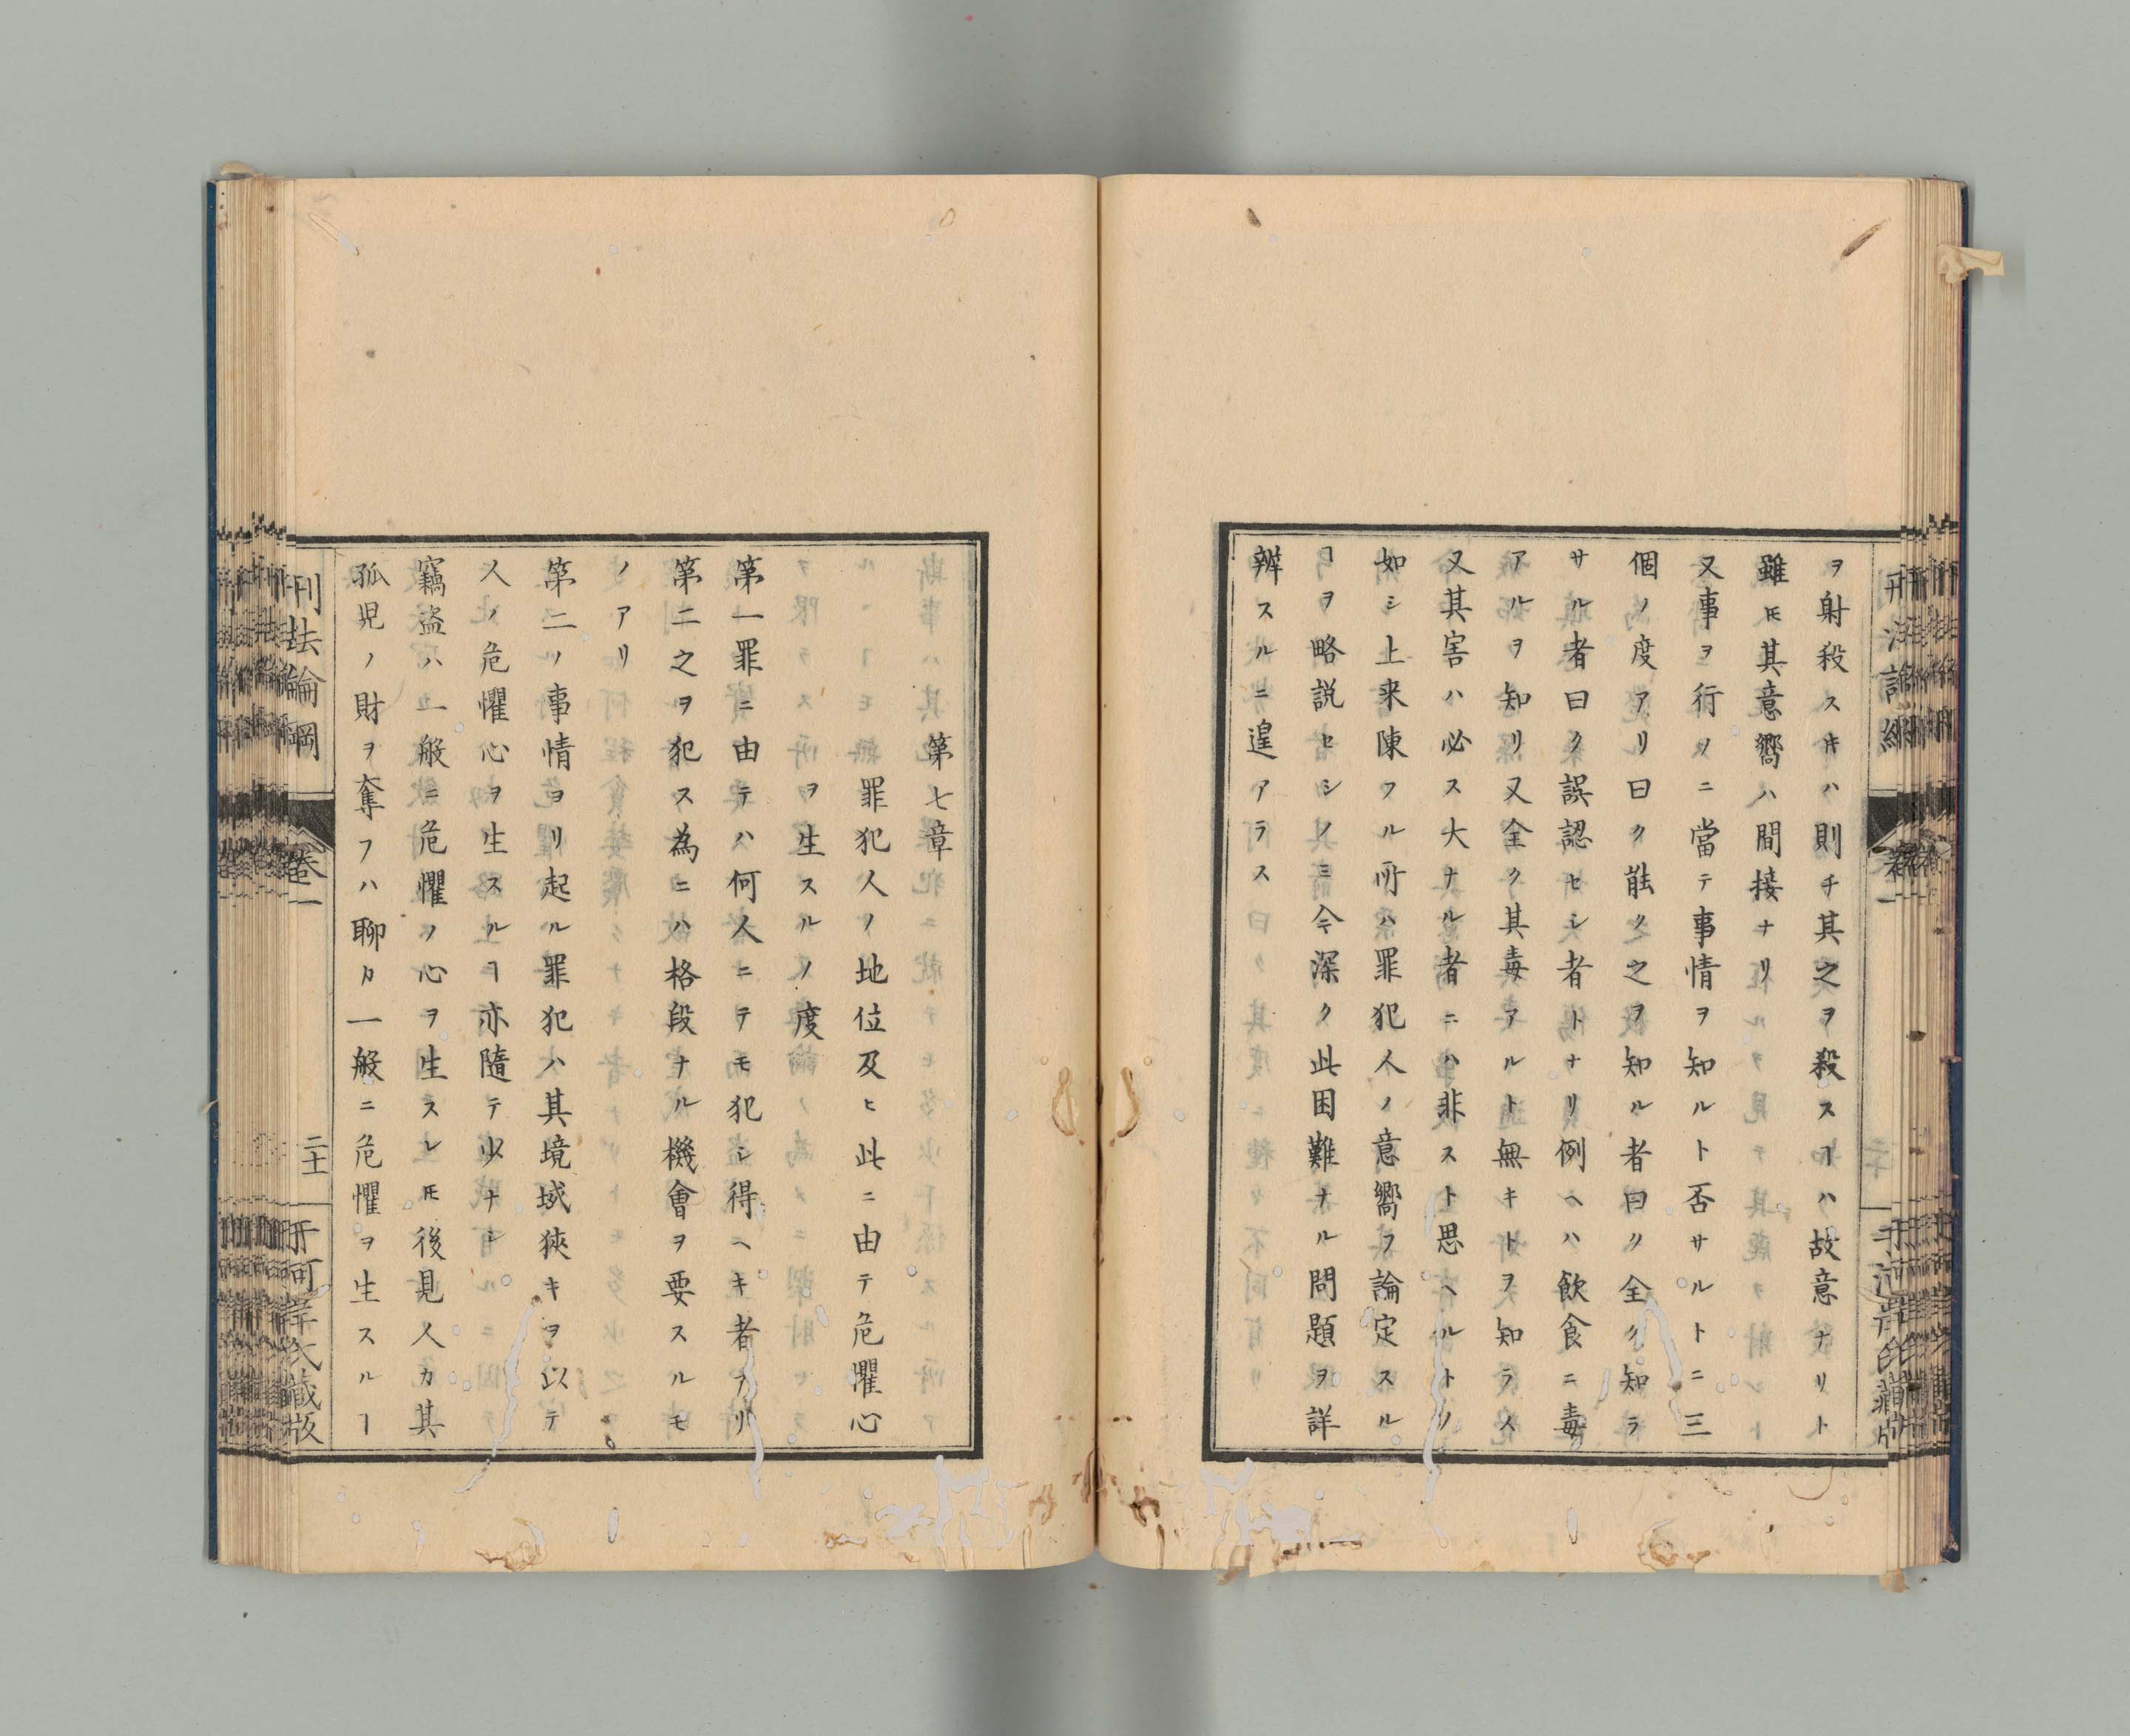 ヲ射殺スキハ則チ其之ヲ殺スヿハ故意ナリト
雖𪜈其意嚮ハ間接ナリ
又事ヲ行フニ當テ事情ヲ知ルト否サルトニ三
個ノ度アリ曰ク能ク之ヲ知ル者曰ク全ク知ラ
サル者曰ク誤認セシ者トナリ例ヘハ飲食ニ毒
アルヲ知リ又全ク其毒アルト無キトヲ知ラス
又其害ハ必ス大ナル者ニハ非スト思ヘルトノ
如シ上来陳フル所ハ罪犯人ノ意嚮ヲ論定スル
ヿヲ略説セシノミ今深ク此困難ナル問題ヲ詳
辨スルニ遑アラス
第七章
罪犯人ノ地位及ヒ此ニ由テ危懼心
ヲ生スルノ度
第一罪ニ由テハ何人ニテモ犯シ得ヘキ者アリ
第二之ヲ犯ス為ニハ格段ナル機會ヲ要スルモ
ノアリ
第二ノ事情ヨリ起ル罪犯ハ其境域狹キヲ以テ
人ノ危懼心ヲ生スルヿ亦隨テ少ナシ
竊盗ハ一般ニ危懼ノ心ヲ生スレ𪜈後見人カ其
孤児ノ財ヲ奪フハ聊カ一般ニ危懼ヲ生スルヿ
刑法論綱
卷一
二十一
于河岸氏藏版